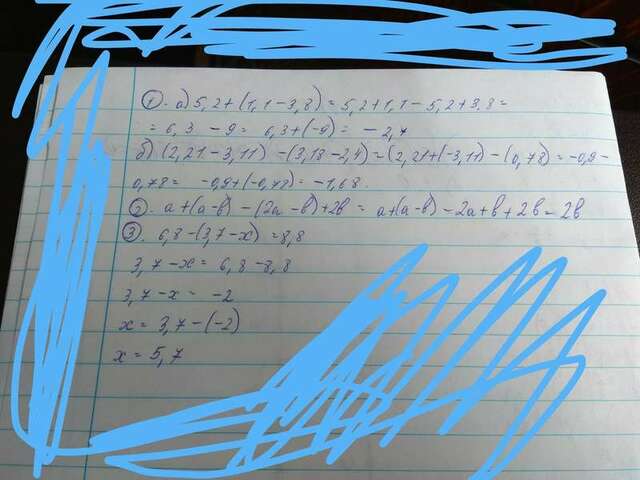 1. а) 5,2+(1,1-3,8)=5,2+1,1-5,2+3.8=
=6,3 -9= 6,3+(-9)= -2,7
б) (2,21-3,11) -(3,18-2,4)=(2,21+(-3,11)-(0,78)=-0,9-
0,78= -0,9+(-0,78)=-1,68.
2. a+(a-в)-(2a-в)+2в= a+(a-в)-2a+в+2в=2в
3. 6,8-(3,7-x)=8,8
3,7-x= 6,8-8,8
3,7-x= -2
x= 3,7-(-2)
x= 5,7